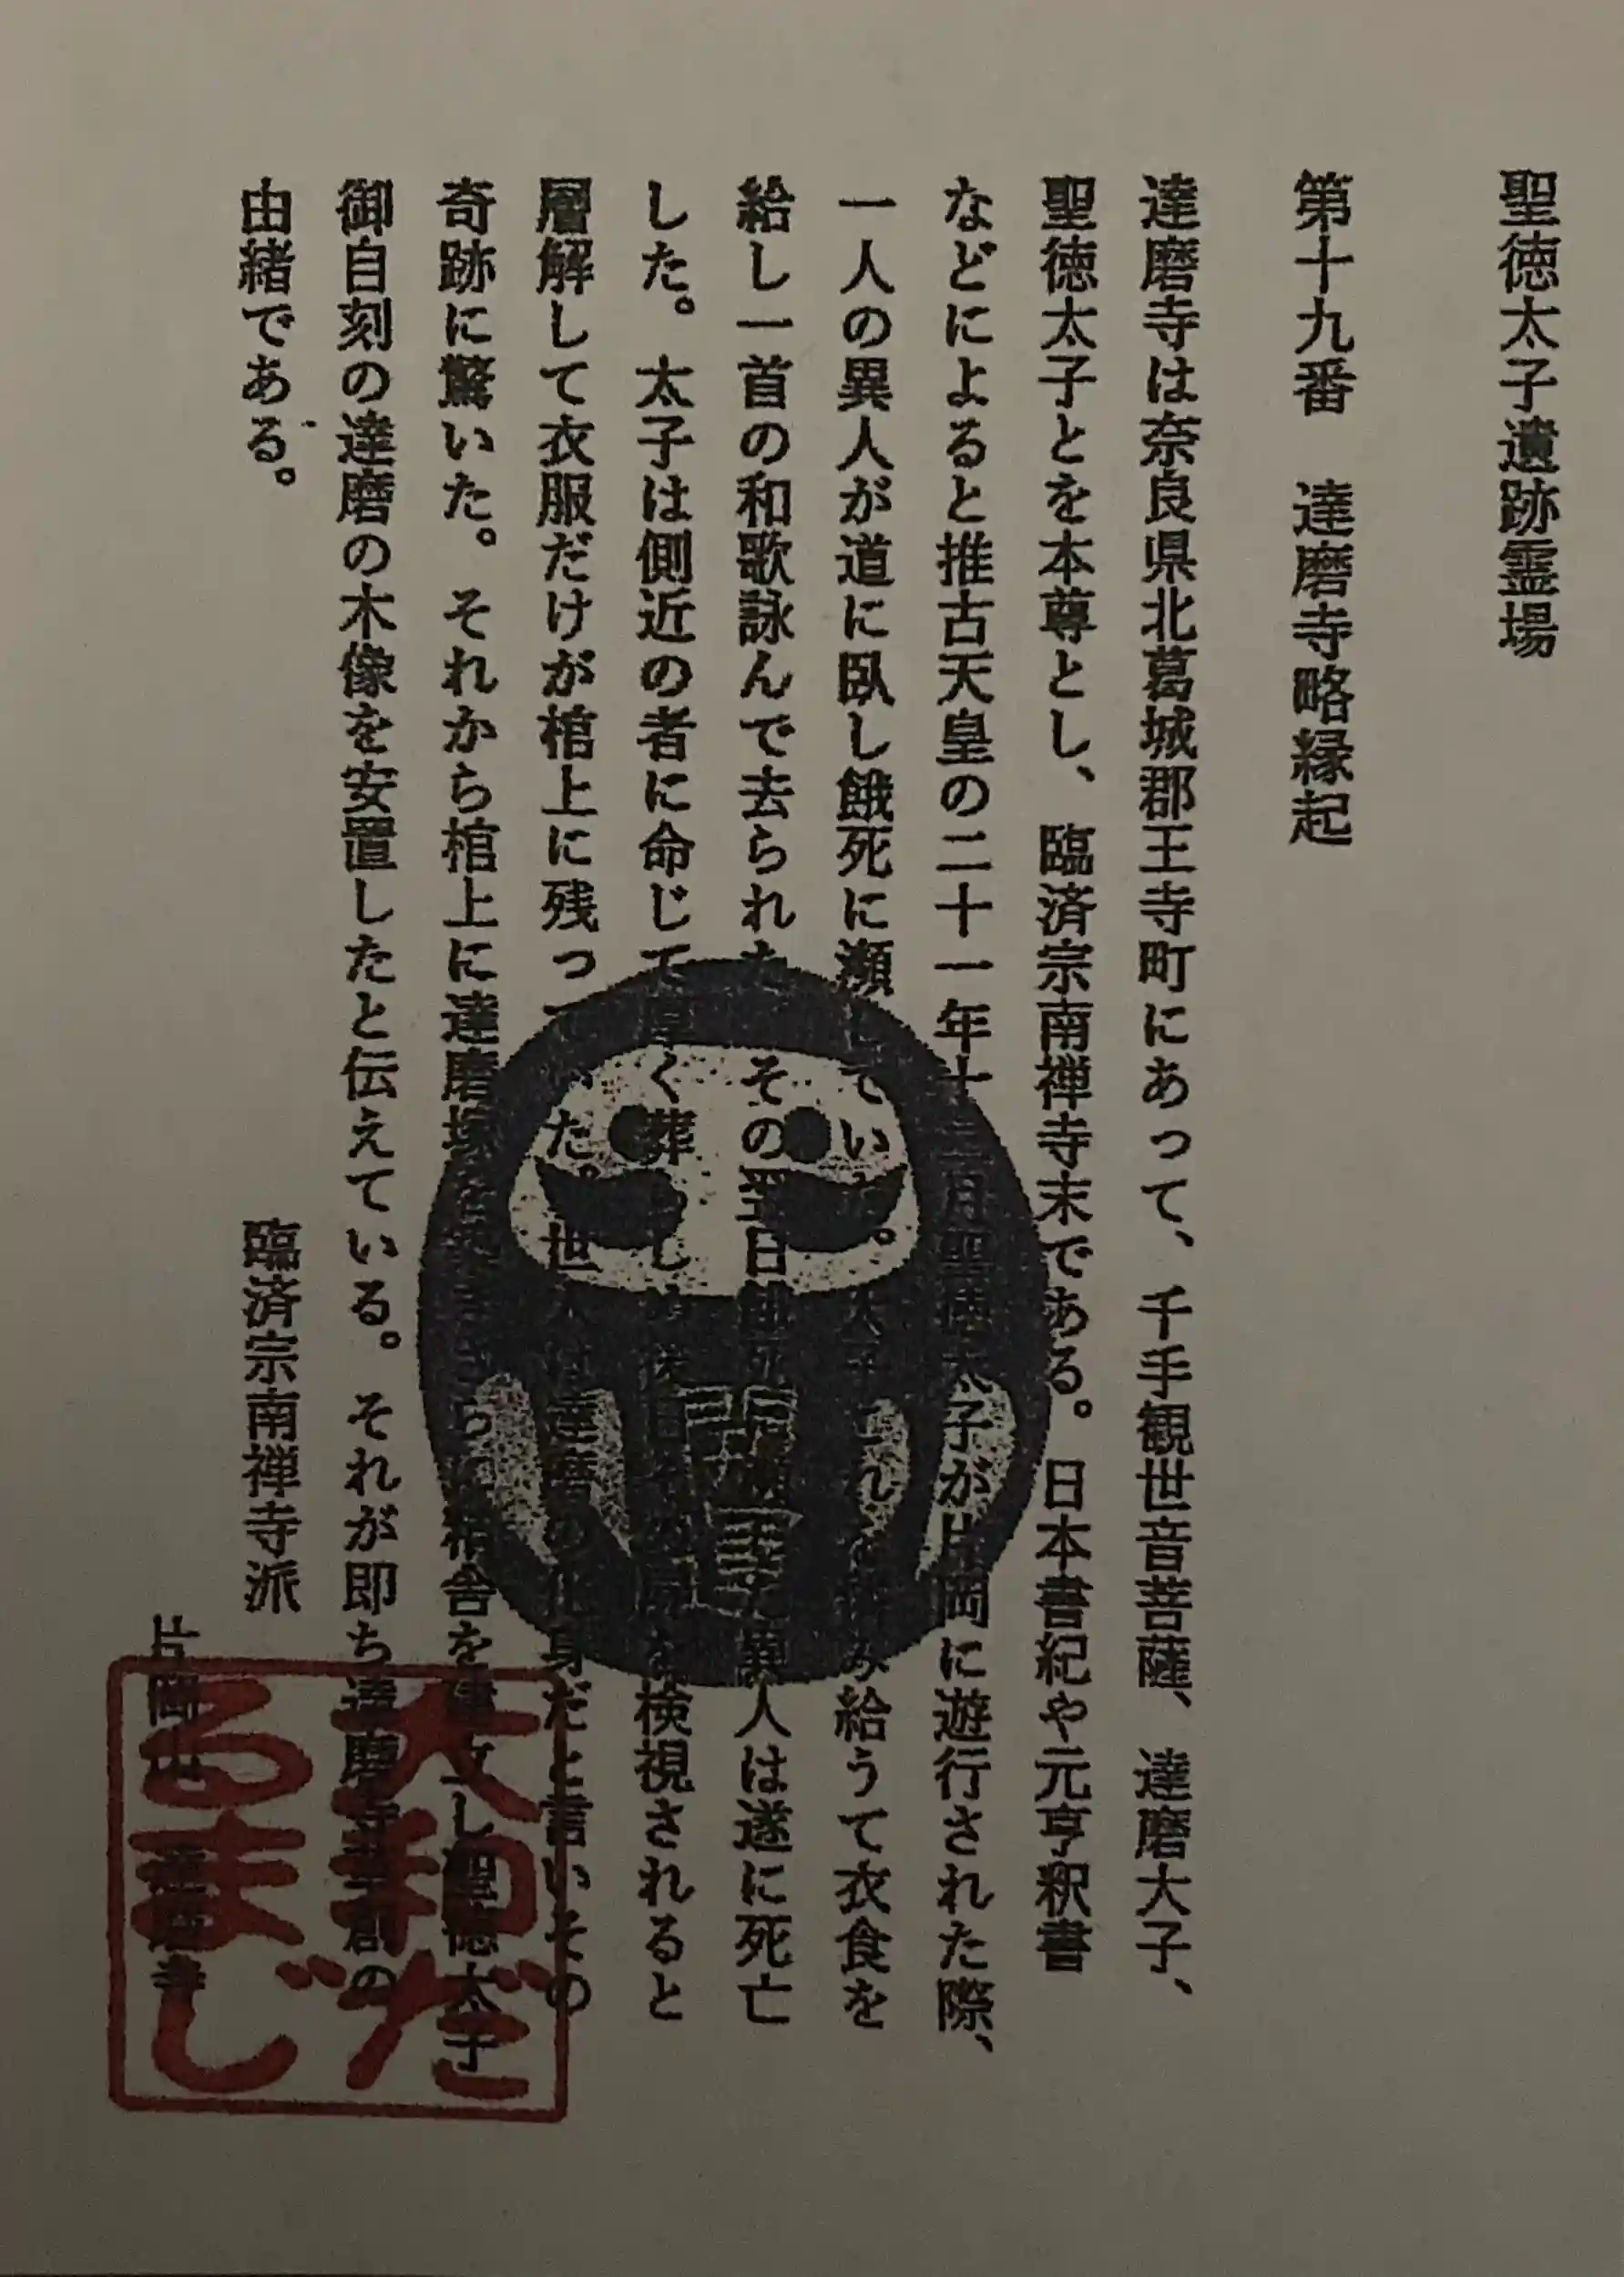 聖徳太子遺跡霊場
第十九番　達磨寺略縁起
達磨寺は奈良県北葛城郡王寺町にあって、千手観世音菩薩、達磨大子、
聖徳太子とを本尊とし、臨済宗南禅寺末である。日本書紀や元亨釈書
などによると推古天皇の二十一年十二月聖徳太子が片岡に遊行された際、
一人の異人が道に臥し餓死に瀕していた。太子これを憐み給うて衣食を
給し一首の和歌詠んで去られた その翌日餓死に瀕した異人は遂に死亡
した。太子は側近の者に命じて厚く葬らしめ を検視されると
層解して衣服だけが棺上に残っていた。世人は達磨の化身だと言いその
奇跡に驚いた。それから棺上に達磨塚を築きさらに精舎を建立し聖徳太子
御自刻の達磨の木像を安置したと伝えている。それが即ち達磨寺草創の
由緒である。
臨済宗南禅寺派
片岡山　達磨寺
大和だ
るまじ